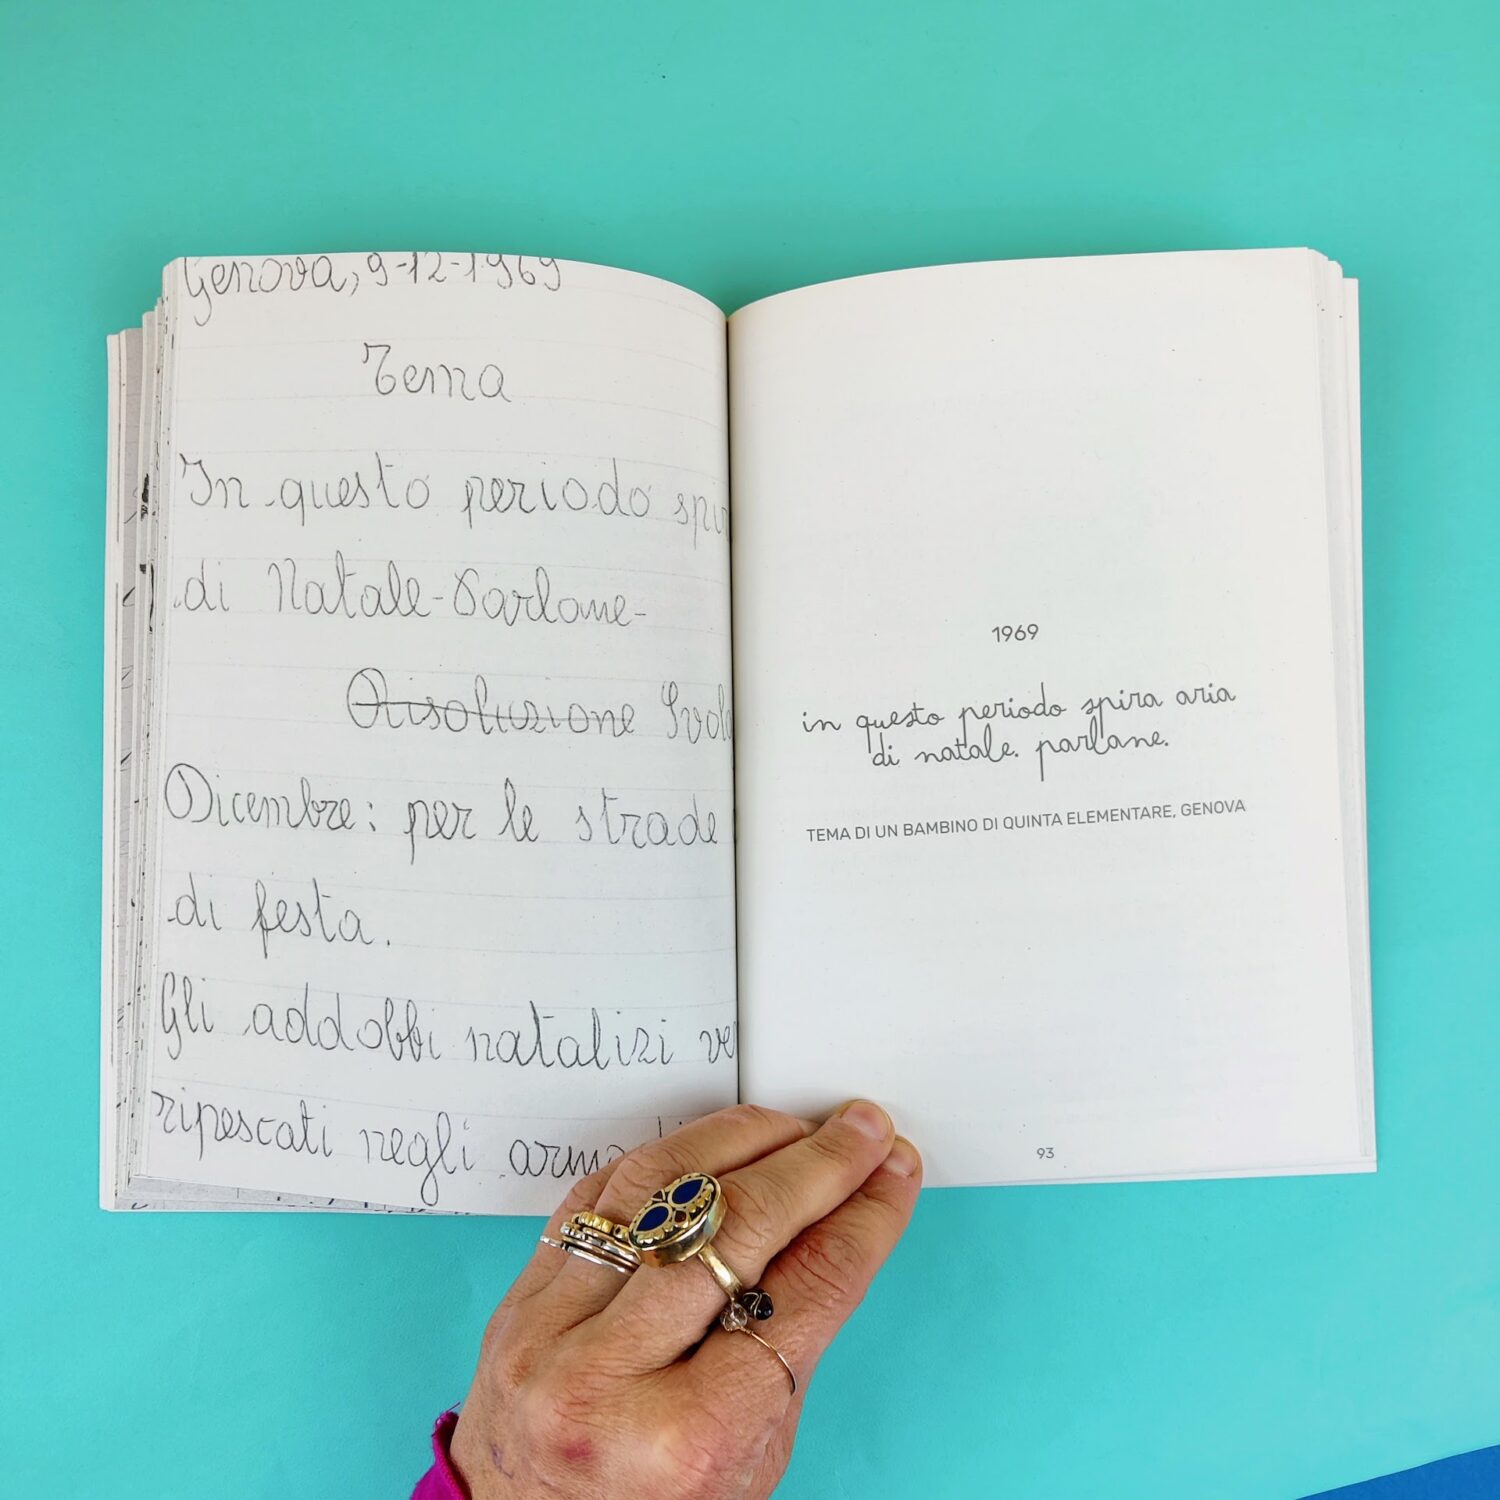 Genova, 9-12-1969
Tema
In questo periodo
di Natale - Parlane -
Risoluzione
Dicembre: per le strade
di festa.
Gli addobbi natalizi
ripescati negli
1969
in questo periodo spira aria
di natale. parlane.
TEMA DI UN BAMBINO DI QUINTA ELEMENTARE, GENOVA
93